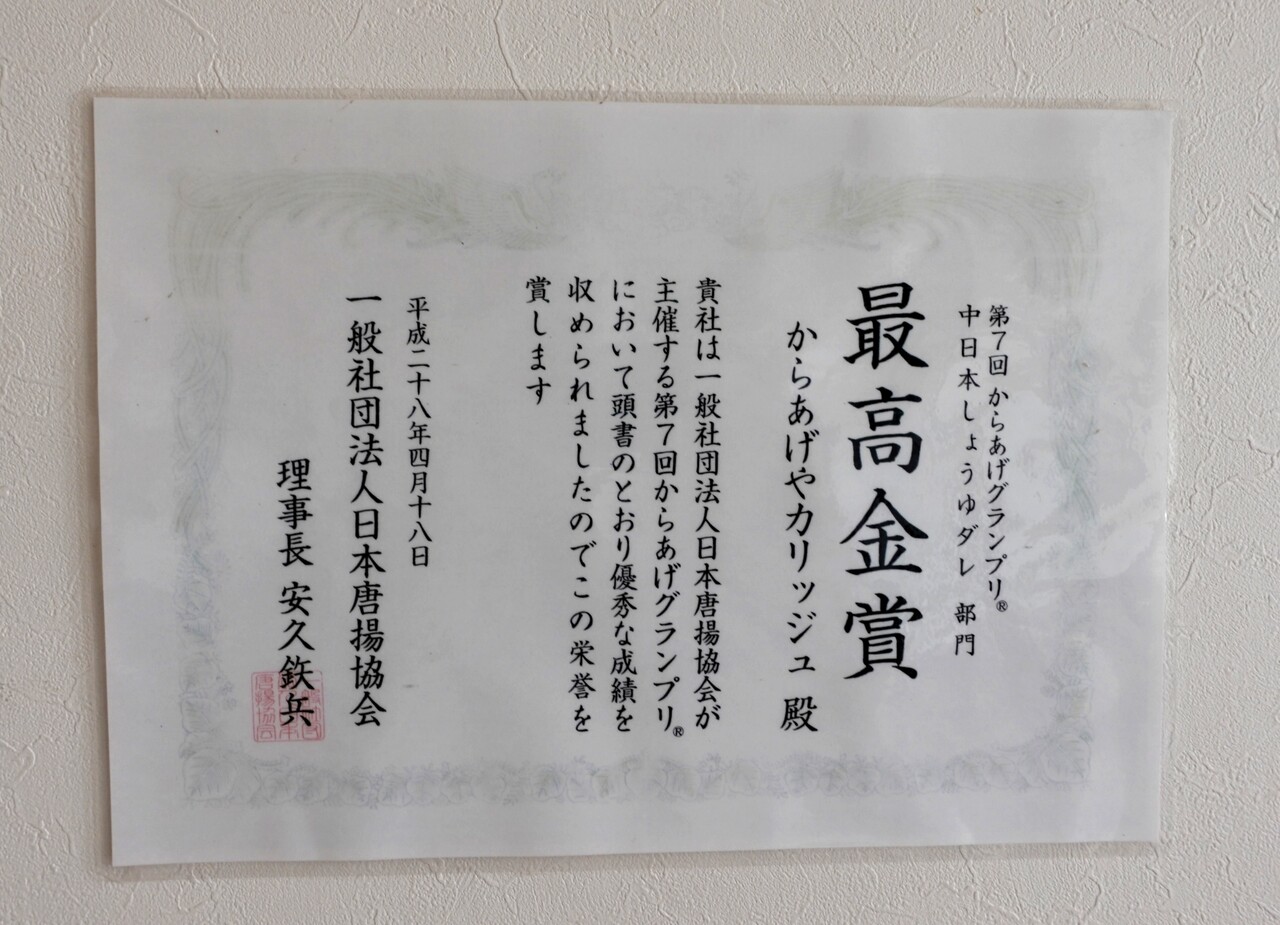 第7回 からあげグランプリ®
中日本しょうゆダレ 部門
最高金賞
からあげやカリッジュ 殿
貴社は一般社団法人日本唐揚協会が
主催する第7回からあげグランプリ®
において頭書のとおり優秀な成績を
収められましたのでこの栄誉を
賞します
平成二十八年四月十八日
一般社団法人日本唐揚協会
理事長 安久鉄兵